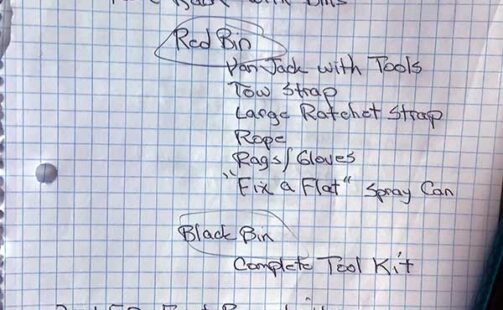 with
Red Bin
Van Jack with Tools
Tow Strap
Large Ratchet Strap
Rope
Rags/Gloves
"Fix a Flat" Spray Can
Black Bin
Complete Tool Kit